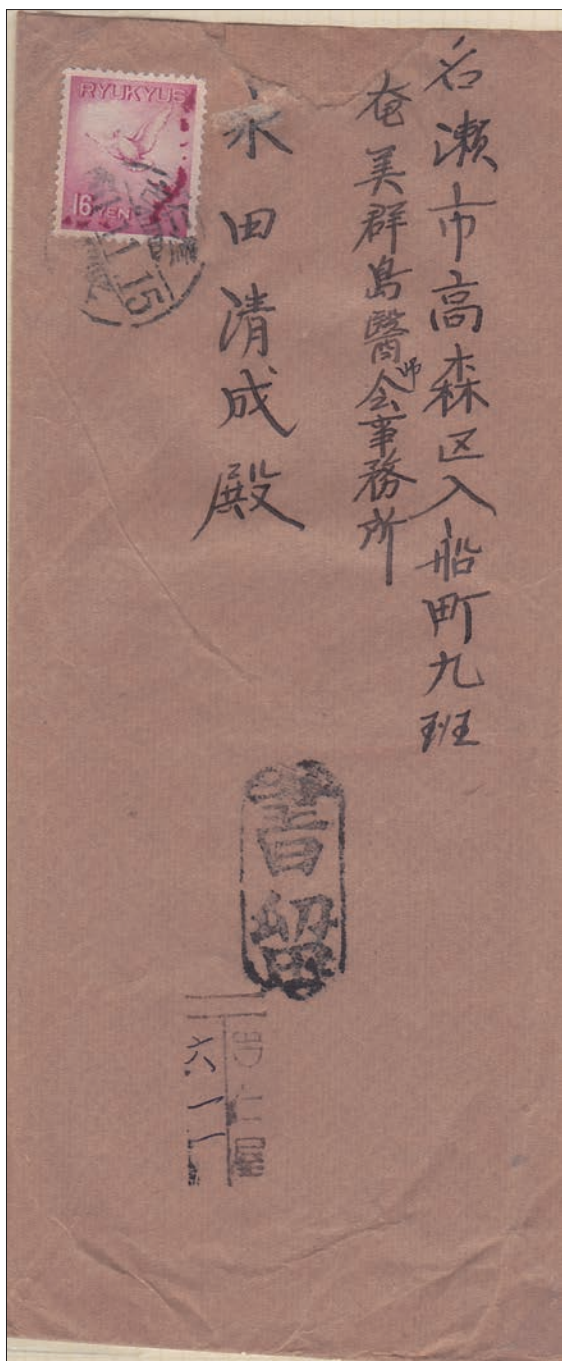 名瀬市高森区入船町九班
奄美群島醫師会事務所
永田清成殿
RYUKYUS
16 YEN
15
書留
古仁屋
六一一